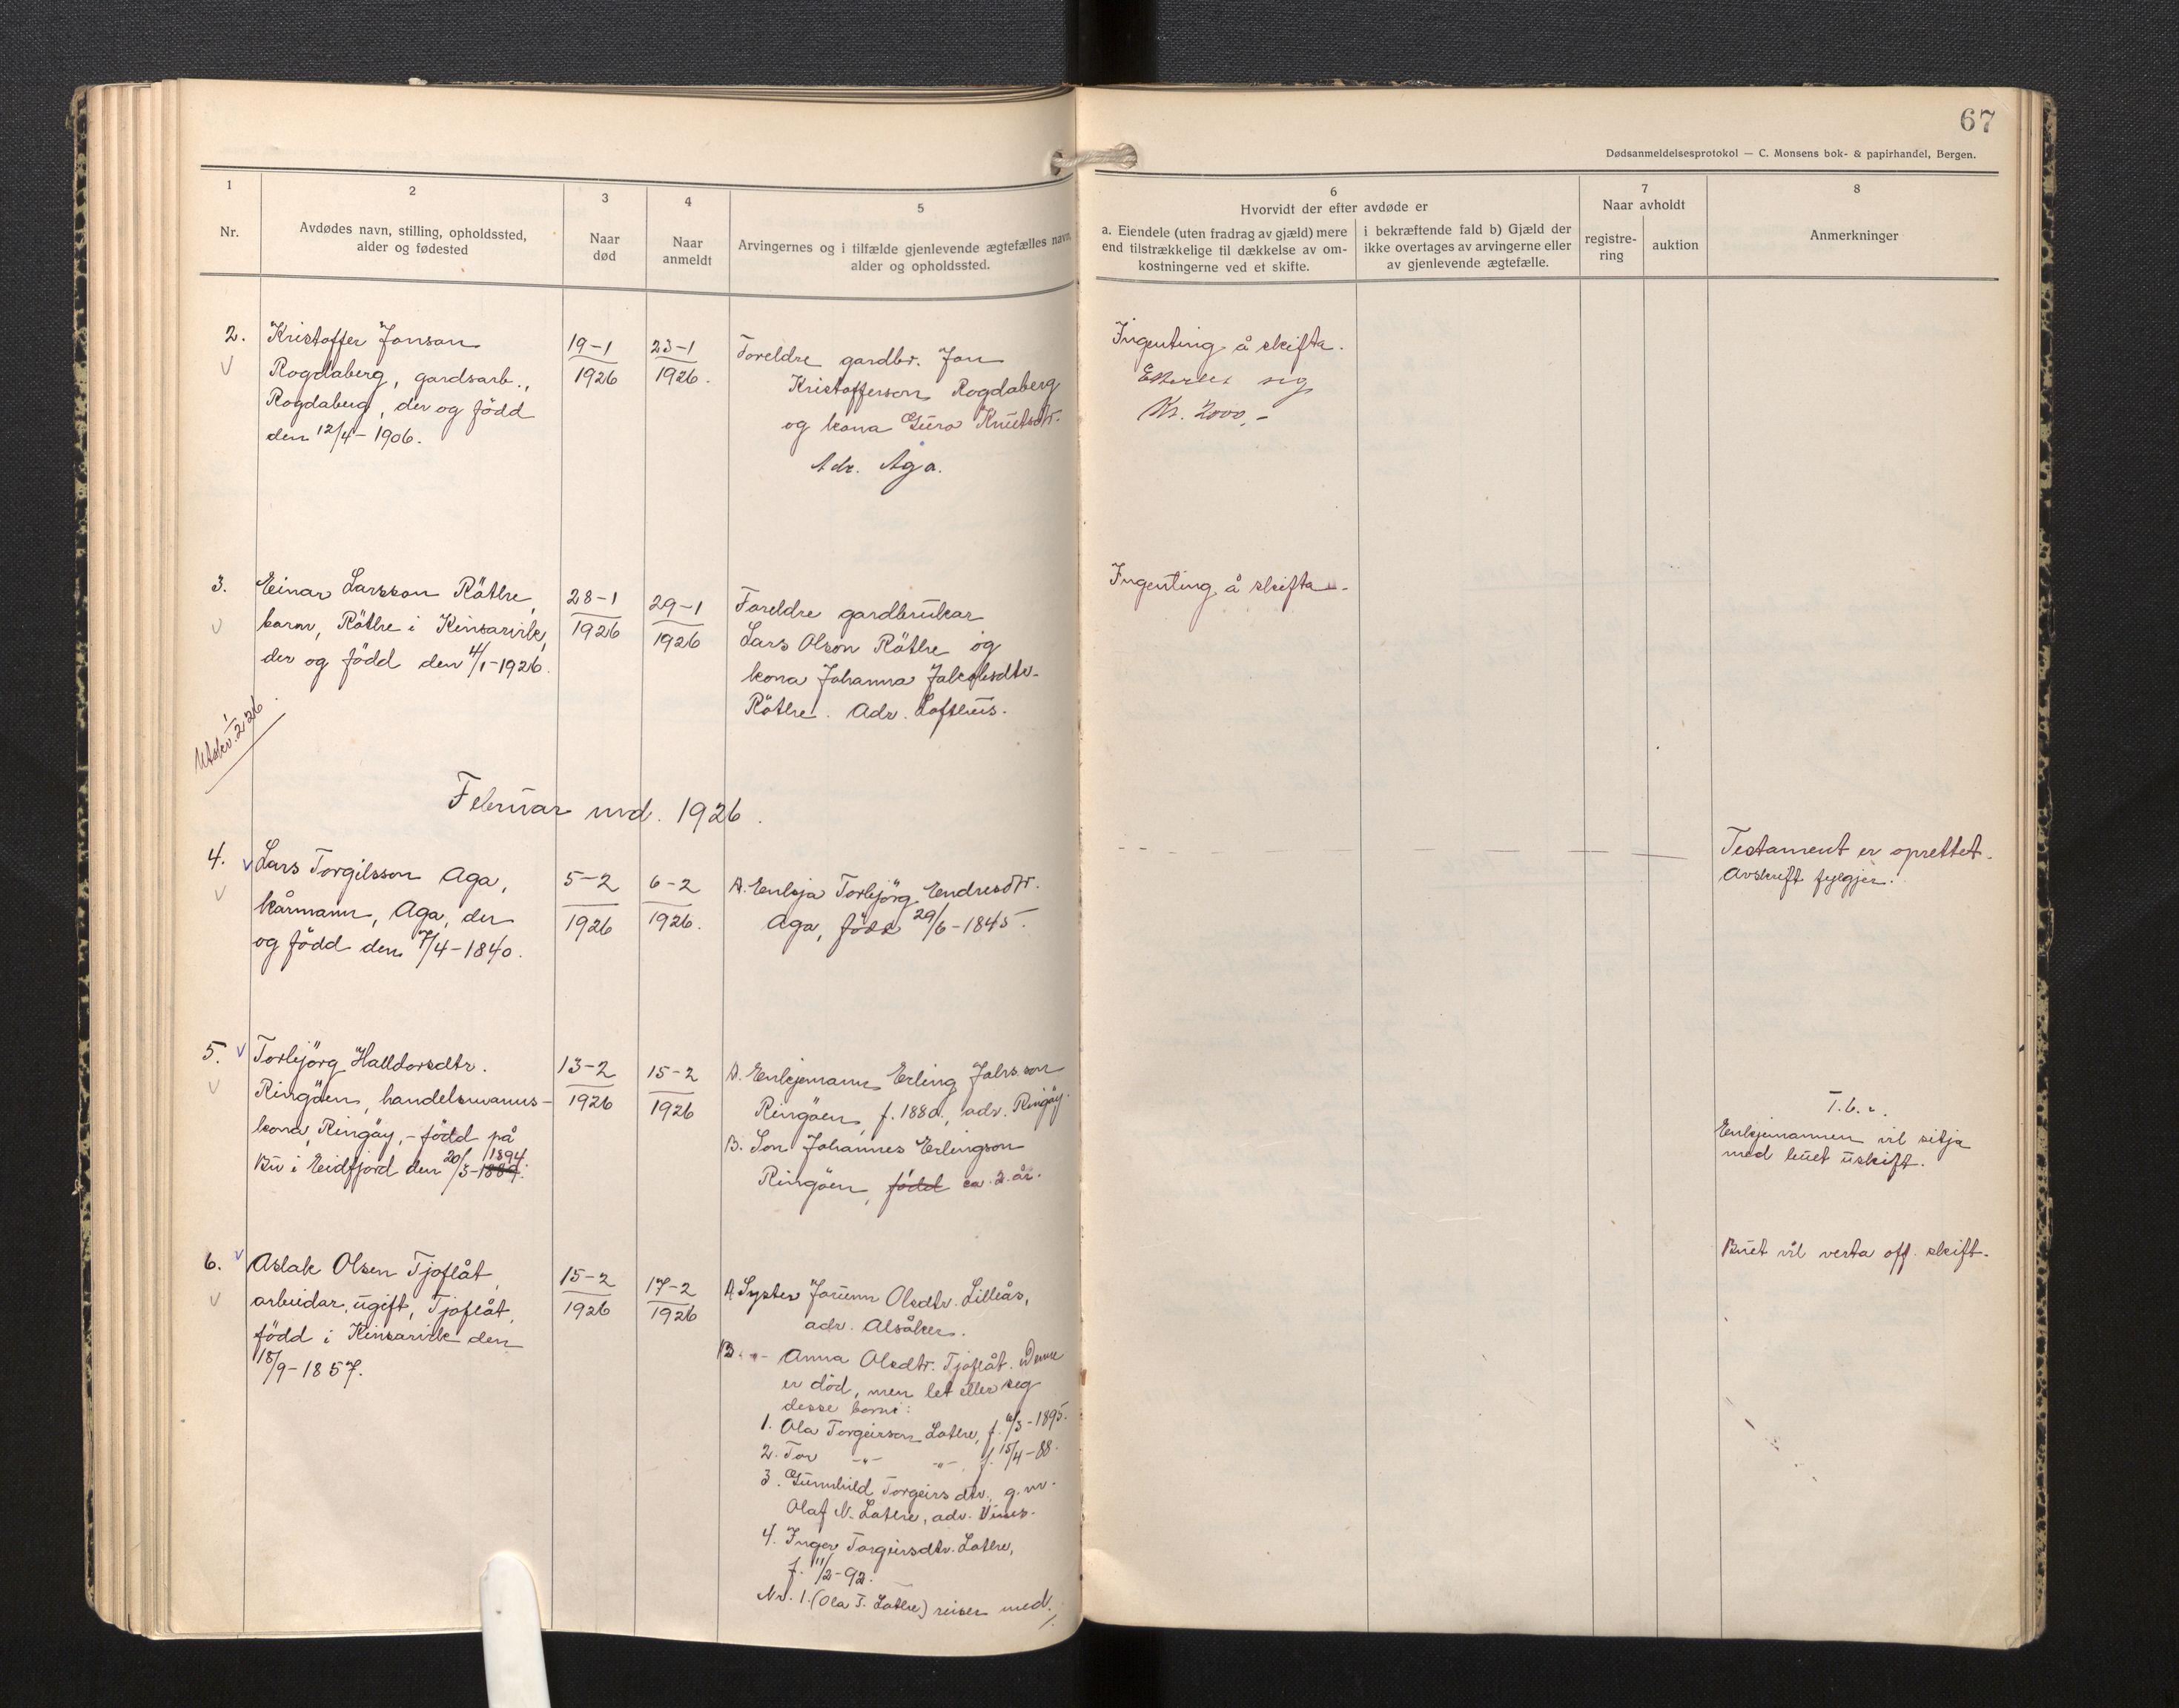 67
Dødsanmeldelsesprotokol — C. Monsens bok- & papirhandel, Bergen.
1
Nr.
2
Avdødes navn, stilling, opholdssted,
alder og fødested
3
Naar
død
4
Naar
anmeldt
5
Arvingernes og i tilfælde gjenlevende ægtefælles navn,
alder og opholdssted.
6
Hvorvidt der efter avdøde er
a. Eiendele (uten fradrag av gjæld) mere
end tilstrækkelige til dækkelse av om-
kostningerne ved et skifte.
i bekræftende fald b) Gjæld der
ikke overtages av arvingerne eller
av gjenlevende ægtefælle.
7
Naar avholdt
registre-
ring
auktion
8
Anmerkninger
2.
Kristoffer Jonson
Rogdaberg, gardsarb.,
Rogdaberg, der og född
den 12/4 - 1906.
19-1
1926
23-1
1926.
Foreldre gardbr. Jon
Kristofferson Rogdaberg
og kona Guro Knutsdtr.
Adr. Aga.
Ingenting å skifta.
seg
Kr. 2000,-
3.
Einar Larsson Röthe,
barn, Röthe i Kinsarvik,
der og född den 4/1-1926.
28-1
1926
29-1
1926
Foreldre gardbrukar
Lars Olson Röthe og
kona Johanna Jakobsdtr.
Röthe. Adr. Lofthus.
Ingenting å skifta.
Utskr. 1/2 26.
Februar md. 1926.
4.
Lars Torgilsson Aga,
kårmann, Aga, der
og född den 7/4-1840.
5-2
1926
6-2
1926.
A. Enkja Torbjörg Endresdtr.
Aga, född 29/6-1845.
Testament er oprettet.
Avskrift fylgjer.
5.
Torbjörg Halldorsdtr.
Ringöen, handelsmanns-
kona, Ringöy, - född på
Bu i Eidfjord den 20/3-1889. 1894.
13-2
1926
15-2
1926
A. Enkjemann Erling Johs.son
Ringöen, f. 1880, adr. Ringöy.
B. Son Johannes Erlingson
Ringöen, född ca. 2 år.
Enkjemannen vil sitja
med buet uskift.
6.
Aslak Olsen Tjoflåt,
arbeidar, ugift, Tjoflåt,
född i Kinsarvik den
18/9-1857.
15-2
1926
17-2
1926
A. Syster Jorunn Olsdtr. Lilleås,
adr. Alsåker.
B. -"- Anna Olsdtr. Tjoflåt. Denne
er död, men let etter seg
desse born:
1. Ola Torgeirson Lothe, f. 6/3-1895.
2. Tor -"- -"-, f. 15/4-88.
3. Gunnhild Torgeirsdtr., g.m.
Olaf N. Lothe, adr. Vines.
4. Inger Torgeirsdtr. Lothe,
f. 11/2-92.
Nr. 1. (Ola T. Lothe) reiser med.
Buet vil verta off. skift.